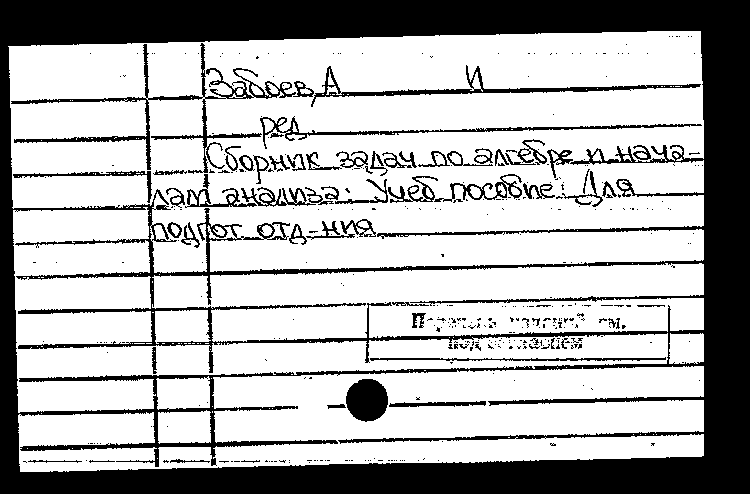 Забоев, А И
ред.
Сборник задач по алгебре и нача-
лам анализа: Учеб пособие: Для
подгот отд-ния
Перечень изданий см.
под заглавием